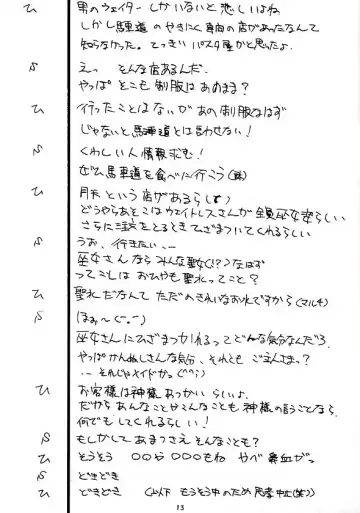 ひ 男のウェイターしかいないと悲しいよね
しかし馬車道のやきにく専向の店があったなんて
知らなかった。てっきりパスタ屋かと思ったよ。
S えっ そんな店あるんだ.
やっぱ どこも制服はあのまま?
ひ 行ったことはないが あの制服なはず
じゃないと馬車道とは言わせない!
S くわしい人情報求む!
ぜひ馬車道を食べに行こう(笑)
ひ 月天という店があるらしい
どうやらあそこはウェイトレスさんが全員巫女らしい
さらに 注文をとるときひざまづいてくれるらしい
S うお、行きたい、、
巫女さんなら みんな聖女(!?)なはず
ってことは おひやも聖水ってこと?
ひ 聖水だなんて ただのきれいなお水ですから(マルチ)
S ほぁ〜(-。-)
巫女さんにひざまつかれるってどんな気分なんだろ.
やっぱかんぬしさんな気分、それとも ごえんさまっ?
… それじゃメイドかっ(^^;)
ひ お客様は神様あつかいらしいよ.
だから あんなことやこんなことも神様の言うことなら.
何でもしてくれるらしい!
S もしかして あまつさえ そんなことも?
ひ そうそう 〇〇や〇〇〇もね やべ 鼻血がっ
S どきどき
ひ どきどき (以下 もうそう中のため 思考中止(笑))
13